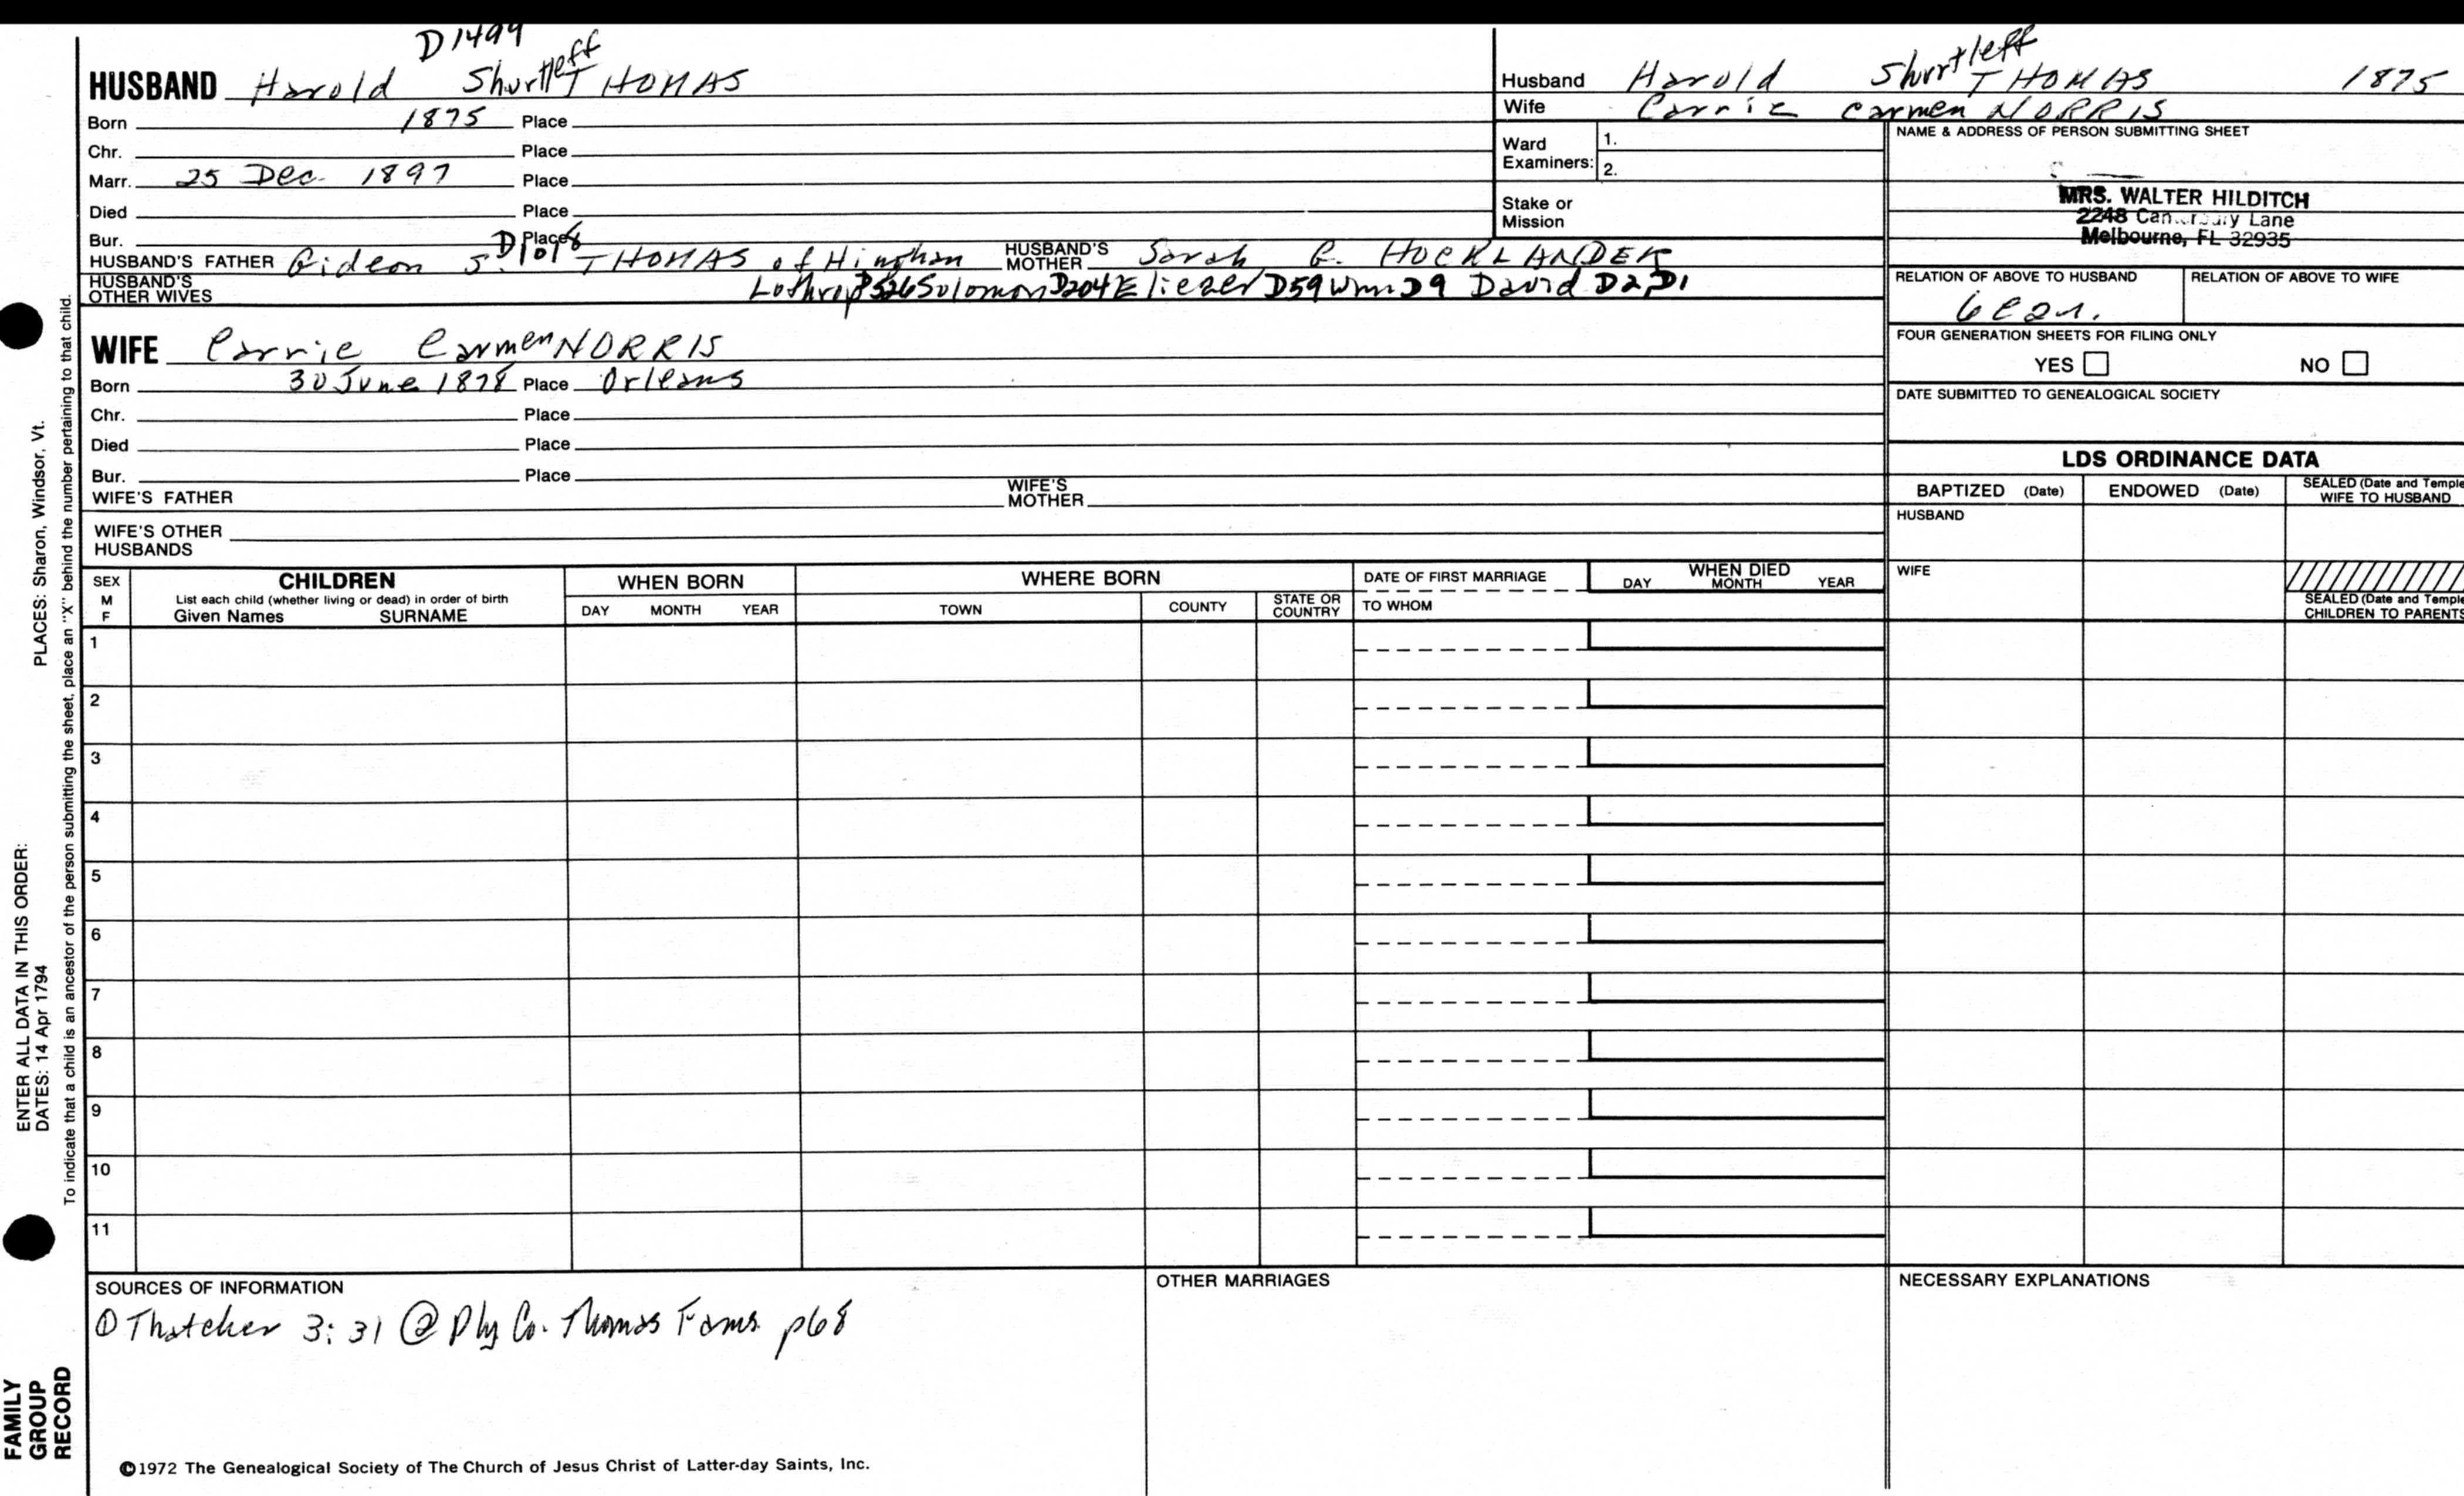 D1499
HUSBAND Harold Shurtleff THOMAS
Born 1875 Place
Chr. Place
Marr. 25 Dec. 1897 Place
Died Place
Bur. Place
HUSBAND'S FATHER Gideon S. D1018 THOMAS of Hingham HUSBAND'S MOTHER Sarah G. HOCKLANDER
HUSBAND'S OTHER WIVES Lothrop D526 Solomon D204 Eliezer D59 Wm D9 David D2, D1
WIFE Carrie Carmen NORRIS
Born 30 June 1878 Place Orleans
Chr. Place
Died Place
Bur. Place
WIFE'S FATHER WIFE'S MOTHER
WIFE'S OTHER HUSBANDS
Husband Harold Shurtleff THOMAS 1875
Wife Carrie Carmen NORRIS
Ward Examiners: 1.
2.
Stake or Mission
NAME & ADDRESS OF PERSON SUBMITTING SHEET
MRS. WALTER HILDITCH
2248 Canterbury Lane
Melbourne, FL 32935
RELATION OF ABOVE TO HUSBAND RELATION OF ABOVE TO WIFE
FOUR GENERATION SHEETS FOR FILING ONLY
YES NO
DATE SUBMITTED TO GENEALOGICAL SOCIETY
LDS ORDINANCE DATA
BAPTIZED (Date) ENDOWED (Date) SEALED (Date and Temple WIFE TO HUSBAND
HUSBAND
WIFE
SEALED (Date and Temple CHILDREN TO PARENTS
SEX M F CHILDREN WHEN BORN WHERE BORN DATE OF FIRST MARRIAGE WHEN DIED
List each child (whether living or dead) in order of birth
Given Names SURNAME DAY MONTH YEAR TOWN COUNTY STATE OR COUNTRY TO WHOM DAY MONTH YEAR
1
2
3
4
5
6
7
8
9
10
11
SOURCES OF INFORMATION
① Thatcher 3:31 @ Ply Co. Thomas Fams. p68
OTHER MARRIAGES
NECESSARY EXPLANATIONS
©1972 The Genealogical Society of The Church of Jesus Christ of Latter-day Saints, Inc.
PLACES: Sharon, Windsor, Vt.
To indicate that a child is an ancestor of the person submitting the sheet, place an "X" behind the number pertaining to that child.
ENTER ALL DATA IN THIS ORDER:
DATES: 14 Apr 1794
FAMILY
GROUP
RECORD